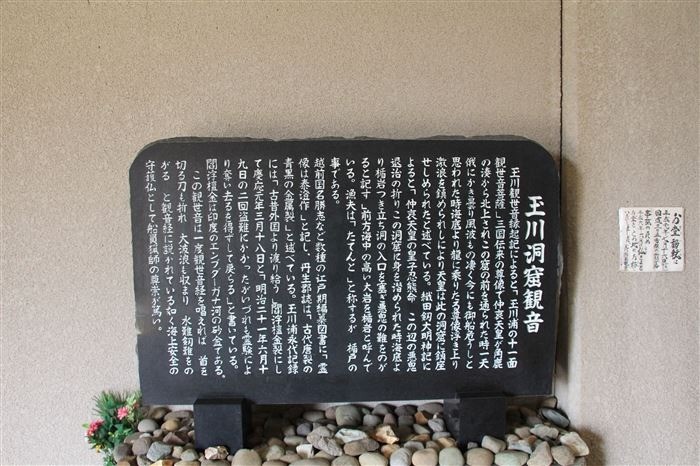 玉川洞窟観音
玉川観世音縁起記によると、玉川浦の十一面
観世音菩薩は三国伝来の尊像で仲哀天皇が角鹿
の湊から北上されこの窟の前を通られた時一天
俄にかき曇り風波もの凄く今にも御船危うしと
思われた時海底より龍に乗りたる尊像浮き上り
激浪を鎮められしにより天皇は此の洞窟に鎮座
せしめられたと述べている。織田剱大明神記に
よると、仲哀天皇の皇子忍熊命 この辺の悪鬼
退治の折り この洞窟に身を治められた時海底よ
り楯岩つき立ち洞の入口を塞ぎ悪鬼の難をのが
ると記す 前方海中の高い大岩を楯岩と呼んで
いる。漁夫は「たてんと」と称するが 楯戸の
事である。
越前国名勝志など数種の江戸期編纂図書に、霊
像は泰澄作」と記し、丹生郡誌は、「古代唐製の
青黒の金属製」と述べている。玉川浦永代記録
には「古昔外国より渡り給う「閻浮檀金製にし
て慶応元年三月十八日と、明治二十一年六月十
九日の二回盗難にかかったがいづれも霊験によ
り奪い去るを得ずして戻らる」と書いている。
閻浮檀金は印度のエンブダーガナ河の砂金である。
この観世音は一度観世音経を唱えれば 首を
切る刀も折れ 大波浪も収まり 水難剱難をの
がる と観音経に説かれている如く海上安全の
守護仏として船員漁師の尊崇が篤い。